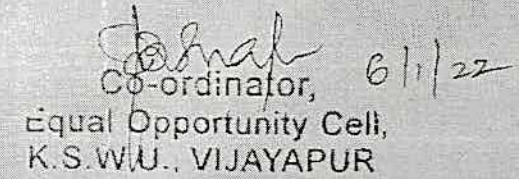 6/1/22
Co-ordinator,
Equal Opportunity Cell,
K.S.W.U., VIJAYAPUR